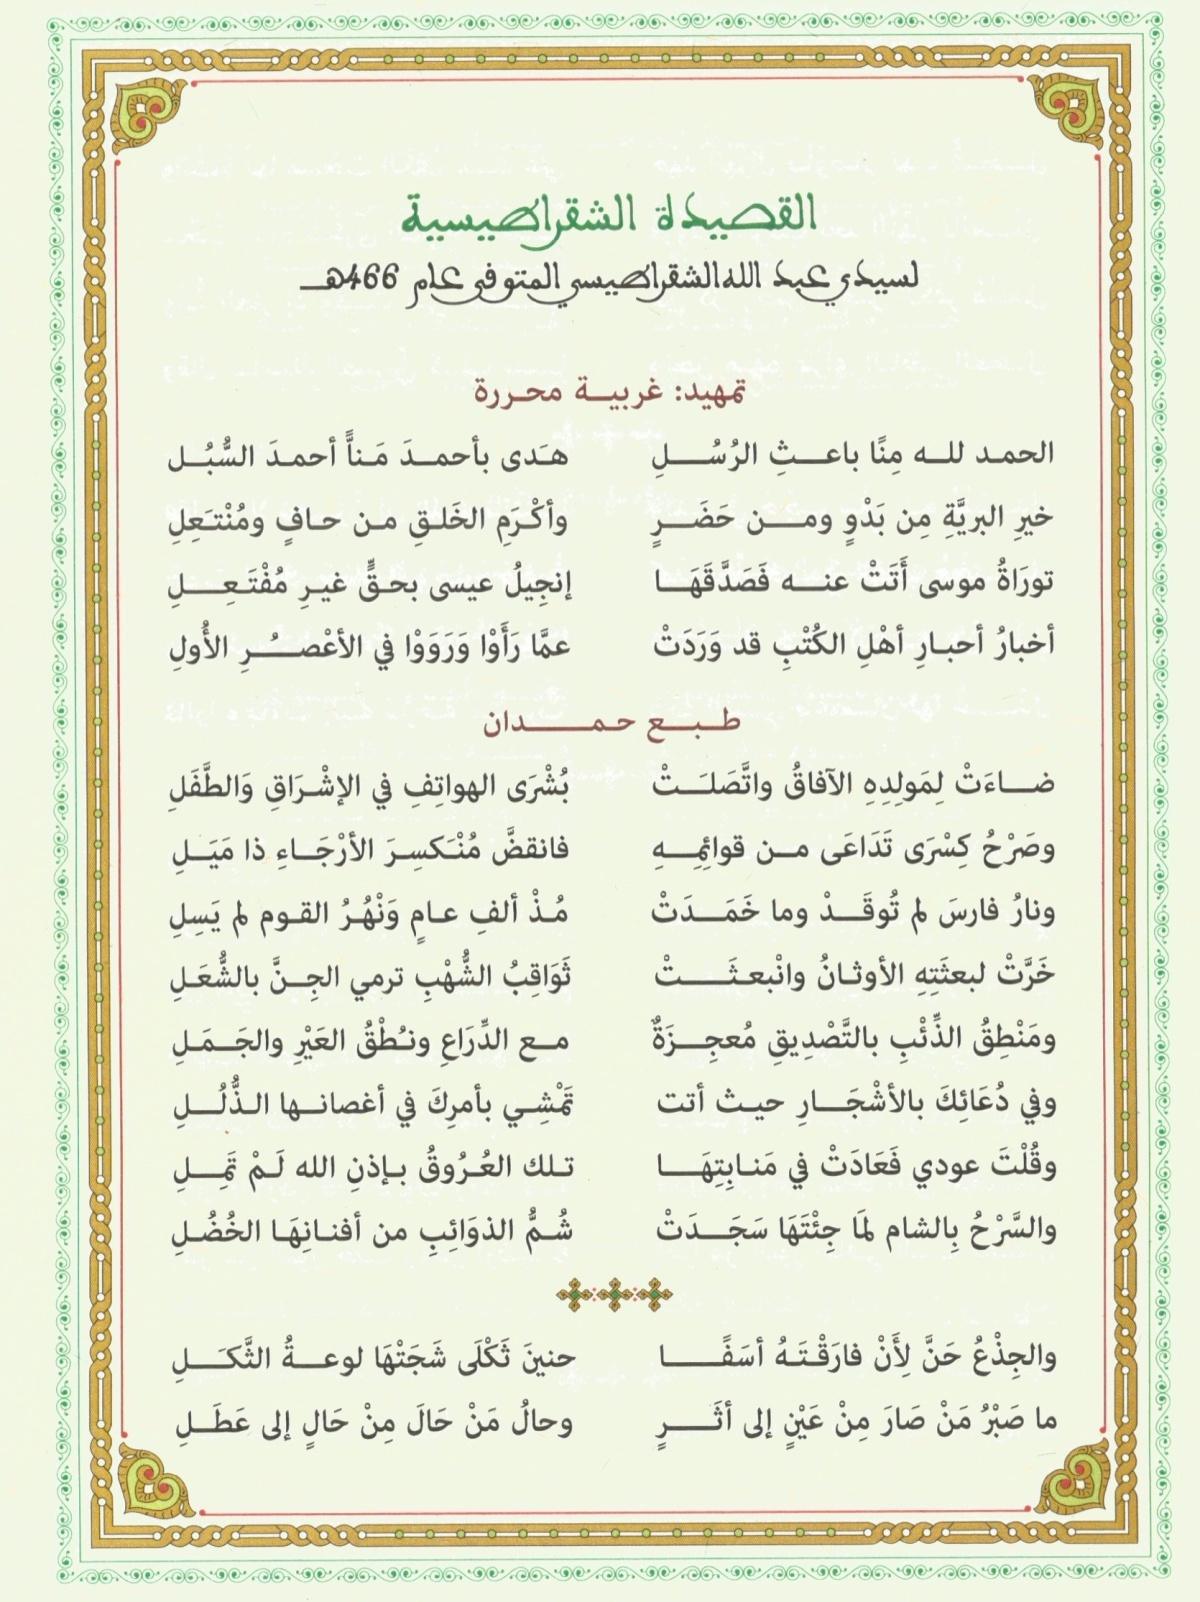 القصيدة الشقراطيسية
لسيدي عبد الله الشقراطيسي المتوفى عام 466هـ
تمهيد: غربية محررة
الحمد لله مِنَّا باعثِ الرُسُلِ هَدى بأحمدَ مَناًّ أحمدَ السُّبُل
خيرِ البريَّةِ مِن بَدْوٍ ومن حَضَرٍ وأكْرَمِ الخَلقِ من حافٍ ومُنْتعِلِ
تورَاةُ موسى أَتَتْ عنه فَصَدَّقَهَا إنجِيلُ عيسى بحقٍّ غيرِ مُفْتَعِلِ
أخبارُ أحبارِ أهْلِ الكُتْبِ قد وَرَدَتْ عمَّا رَأَوْا وَرَوَوْا في الأعْصُرِ الأُولِ
طبع حمدان
ضاءَتْ لِمَولِدِهِ الآفاقُ واتَّصَلَتْ بُشْرَى الهواتِفِ في الإشْرَاقِ وَالطَّفَلِ
وصَرْحُ كِسْرَى تَدَاعَى من قوائِمِهِ فانقضَّ مُنْكسِرَ الأرْجَاءِ ذا مَيَلِ
ونارُ فارسَ لم تُوقَدْ وما خَمَدَتْ مُذْ ألفِ عامٍ وَنْهُرُ القوم لم يَسِلِ
خَرَّتْ لبعثَتِهِ الأوثانُ وانْبعثَتْ ثَوَاقِبُ الشُّهْبِ ترمي الجِنَّ بالشُّعَلِ
ومَنْطِقُ الذِّئْبِ بالتَّصْدِيقِ مُعجِزَةٌ مع الذِّرَاعِ ونُطْقُ العَيْرِ والجَمَلِ
وفي دُعَائِكَ بالأشْجَارِ حيث أتت تَمْشِي بأمرِكَ في أغصانها الذُّلُلِ
وقُلْتَ عودي فَعَادَتْ في مَنابِتِهَا تلك العُرُوقُ بإذنِ الله لَمْ تَمِلِ
والسَّرْحُ بِالشام لمَا جِئْتَهَا سَجَدَتْ شُمُّ الذوَائِبِ من أفنانِهَا الخُضُلِ
والجِذْعُ حَنَّ لِأَنْ فارَقْتَهُ أسَفًا حنينَ ثَكْلَى شَجَتْهَا لوعةُ الثَّكَلِ
ما صَبْرُ مَنْ صَارَ مِنْ عَيْنٍ إلى أثَرٍ وحالُ مَنْ حَالَ مِنْ حَالٍ إلى عَطَلِ